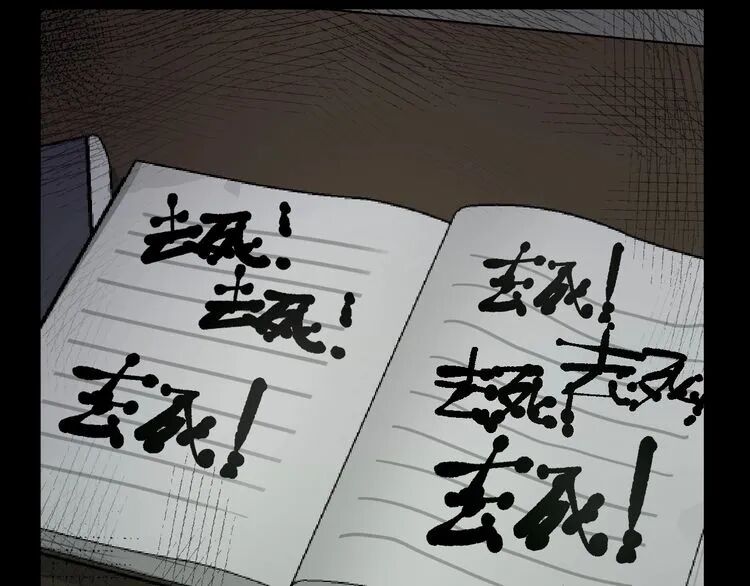 去死！
去死！
去死！
去死！
去死！
去死
去死！